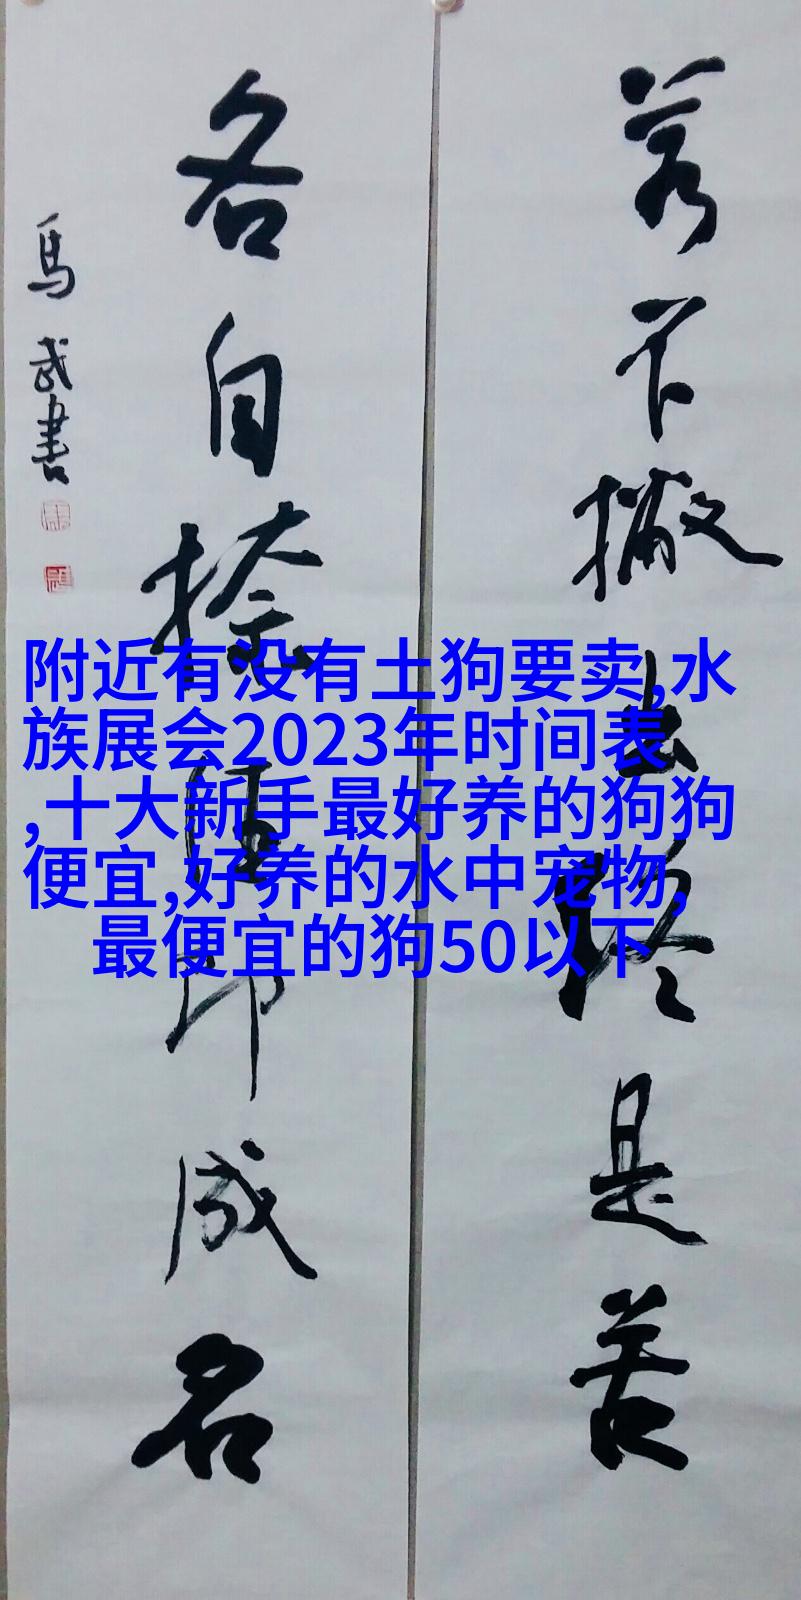 若不撇出终是苦
各自捺住即成名
馬武書
附近有没有土狗要卖,水
族展会2023年时间表
,十大新手最好养的狗狗
便宜,好养的水中宠物,
最便宜的狗50以下